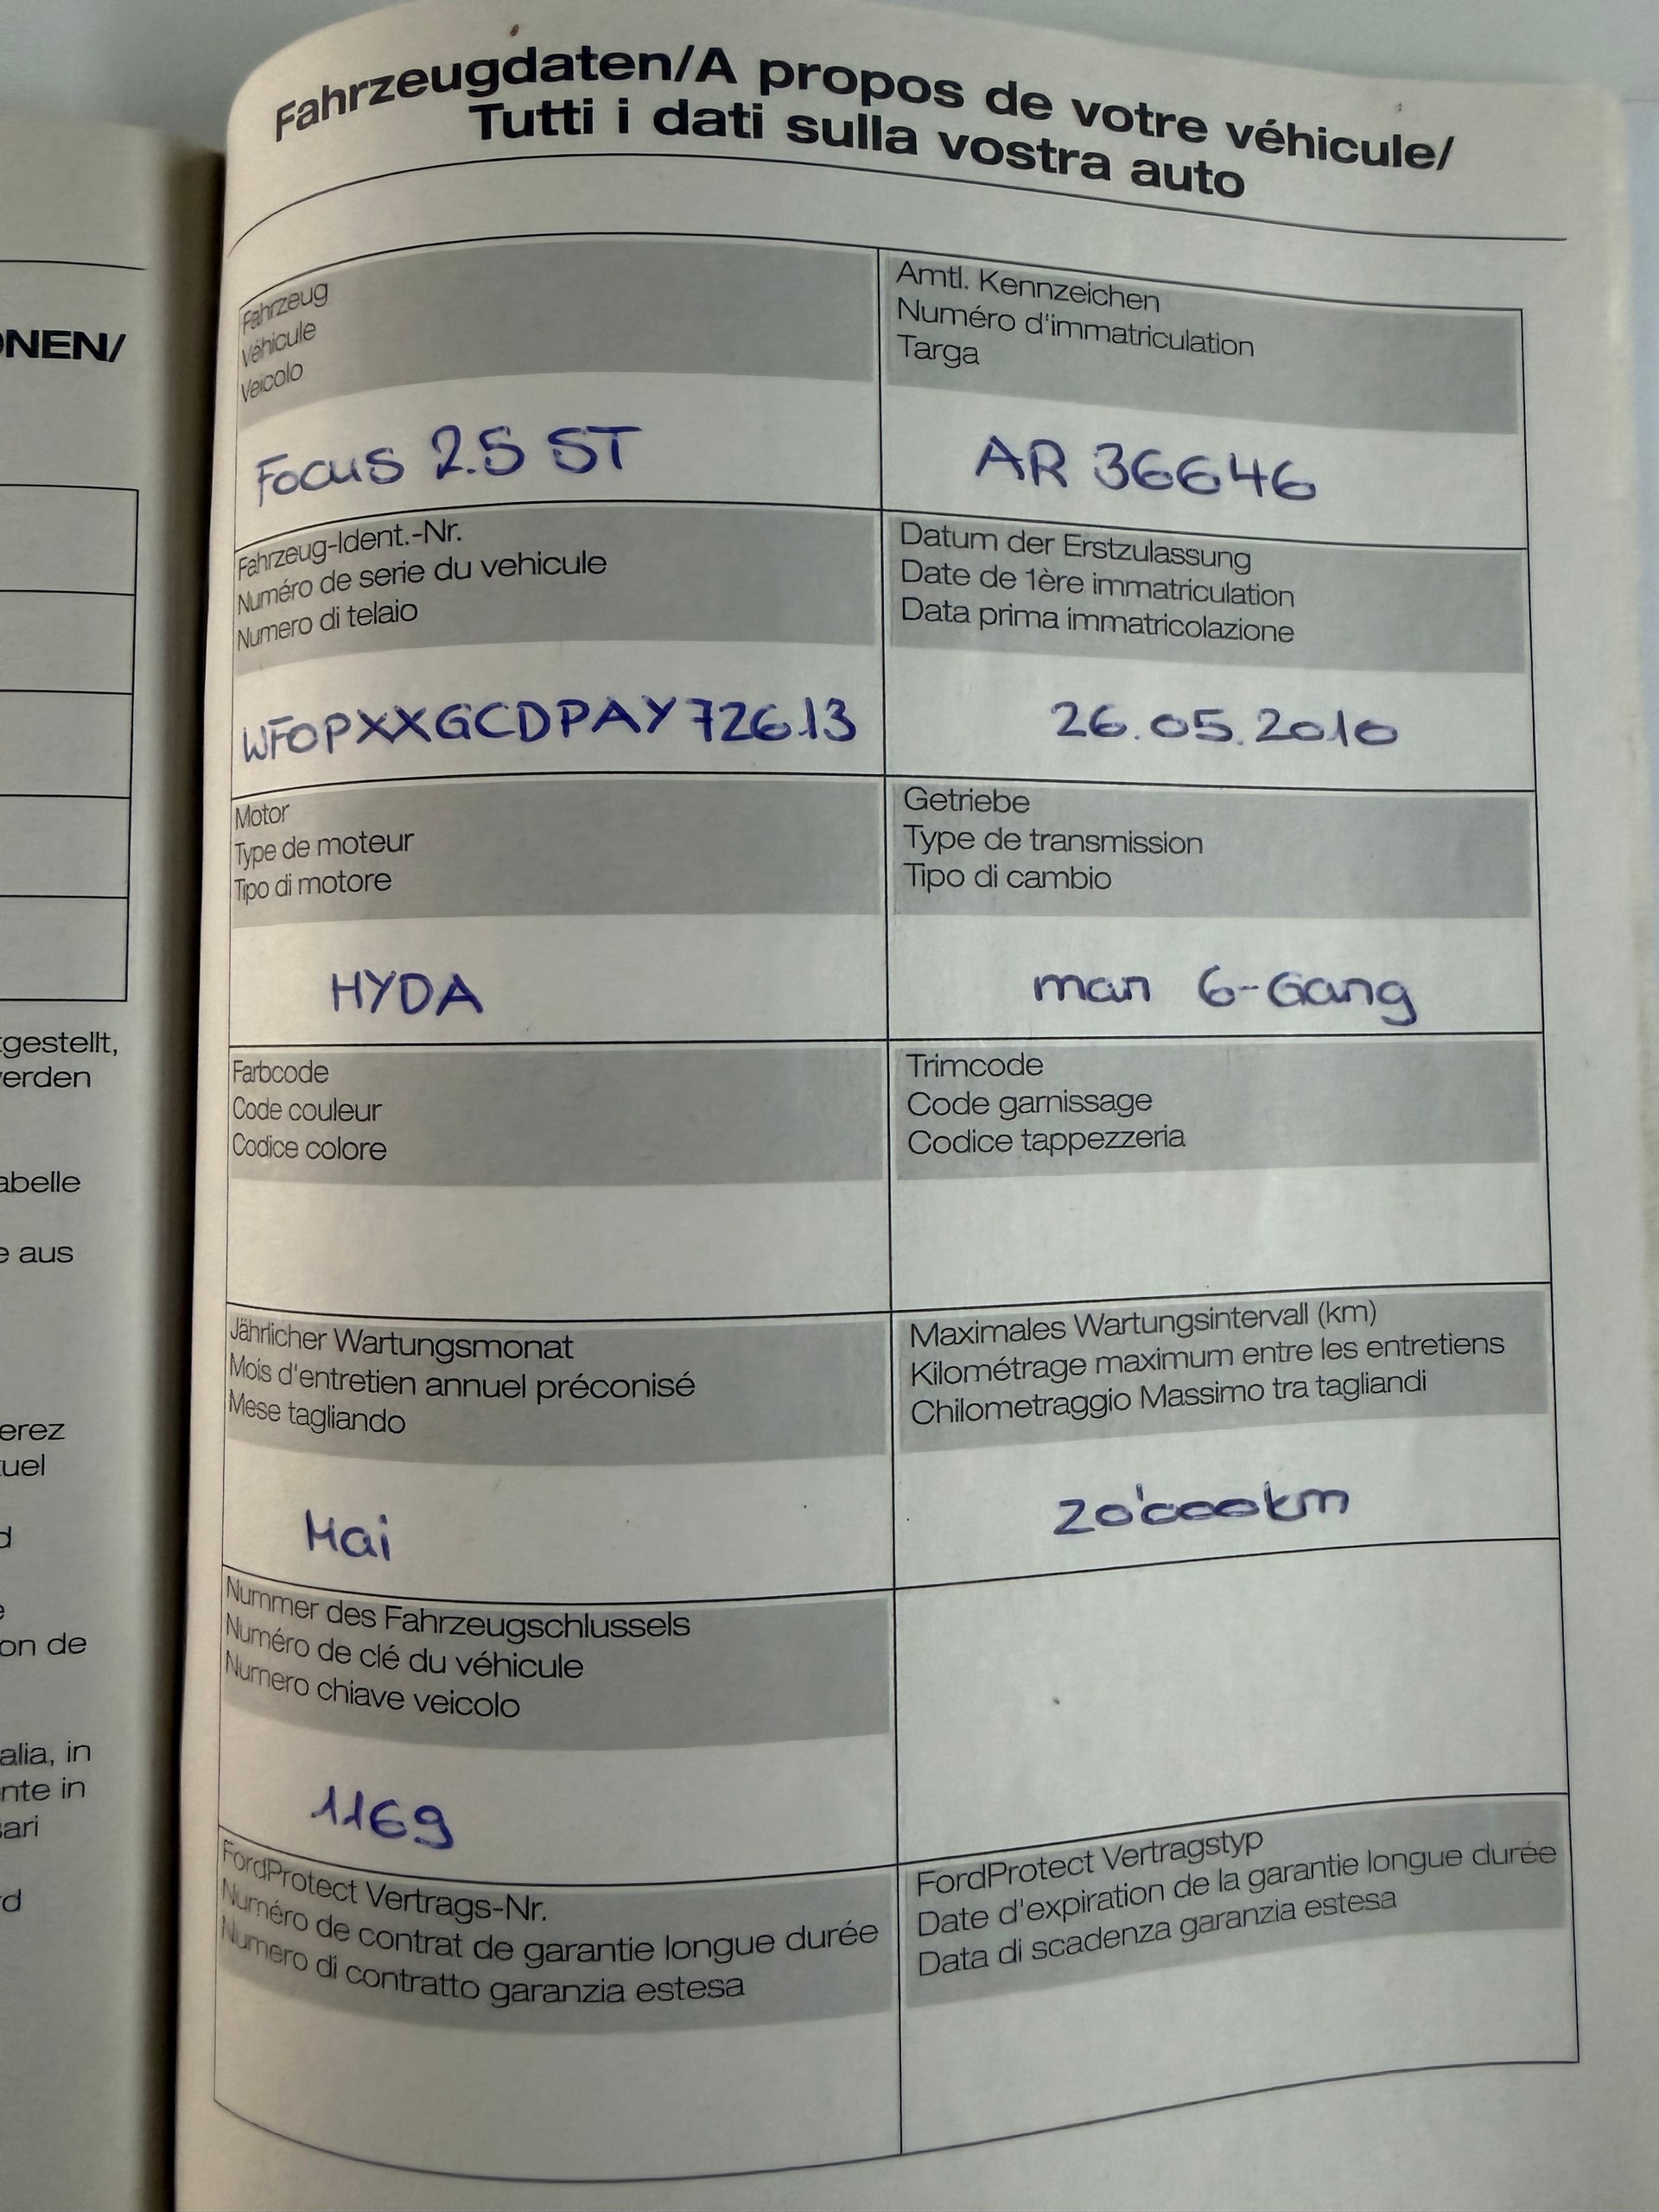 Fahrzeugdaten/A propos de votre véhicule/
Tutti i dati sulla vostra auto
Fahrzeug
Véhicule
Veicolo
Focus 2.5 ST
Amtl. Kennzeichen
Numéro d'immatriculation
Targa
AR 36646
Fahrzeug-Ident.-Nr.
Numéro de serie du vehicule
Numero di telaio
WF0PXXGCDPAY72613
Datum der Erstzulassung
Date de 1ère immatriculation
Data prima immatricolazione
26.05.2010
Motor
Type de moteur
Tipo di motore
HYDA
Getriebe
Type de transmission
Tipo di cambio
man 6-Gang
Farbcode
Code couleur
Codice colore
Trimcode
Code garnissage
Codice tappezzeria
Jährlicher Wartungsmonat
Mois d'entretien annuel préconisé
Mese tagliando
Mai
Maximales Wartungsintervall (km)
Kilométrage maximum entre les entretiens
Chilometraggio Massimo tra tagliandi
20'000km
Nummer des Fahrzeugschlussels
Numéro de clé du véhicule
Numero chiave veicolo
1169
FordProtect Vertrags-Nr.
Numéro de contrat de garantie longue durée
Numero di contratto garanzia estesa
FordProtect Vertragstyp
Date d'expiration de la garantie longue durée
Data di scadenza garanzia estesa